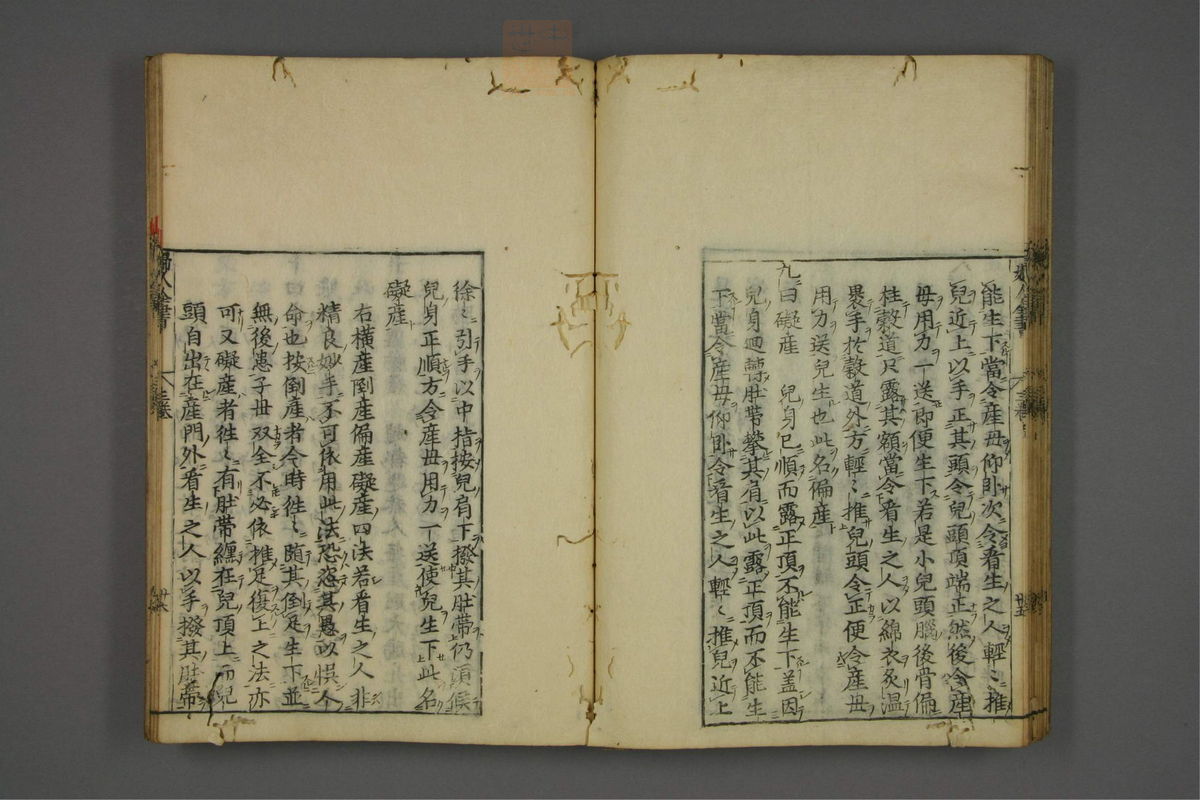 能生下當令産毋仰卧次令看生之人輕〻推
兒近上以手正其頭令兒頭頂端正然後令産
毋用力一送即便生下若是小兒頭腦後骨偏
柱穀道只露其額當令看生之人以綿衣炙温
褁手扵穀道外方輕〻推兒頭令正便令産毋
用力送兒生也此名偏産
九曰礙産　兒身已順而露正頂不能生下盖因
兒身廽轉肚帶攀其肩以此露正頂而不能生
下當令産毋仰卧令看生之人輕〻推兒近上
徐〻引手以中指按兒肩下撥其肚帶仍湏候
兒身正順方令産毋用力一送使兒生下此名
礙産
右橫産倒産偏産礙産四法若看生之人非
精良妙手不可依用此法恐恣其愚以悮人
命也按倒産者今時徃〻隨其倒足生下並
無後患子毋双全不必依推足復上之法亦
可又礙産者徃〻有肚帶纏在兒頂上而兒
頭自出在産門外看生之人以手撥其肚帶